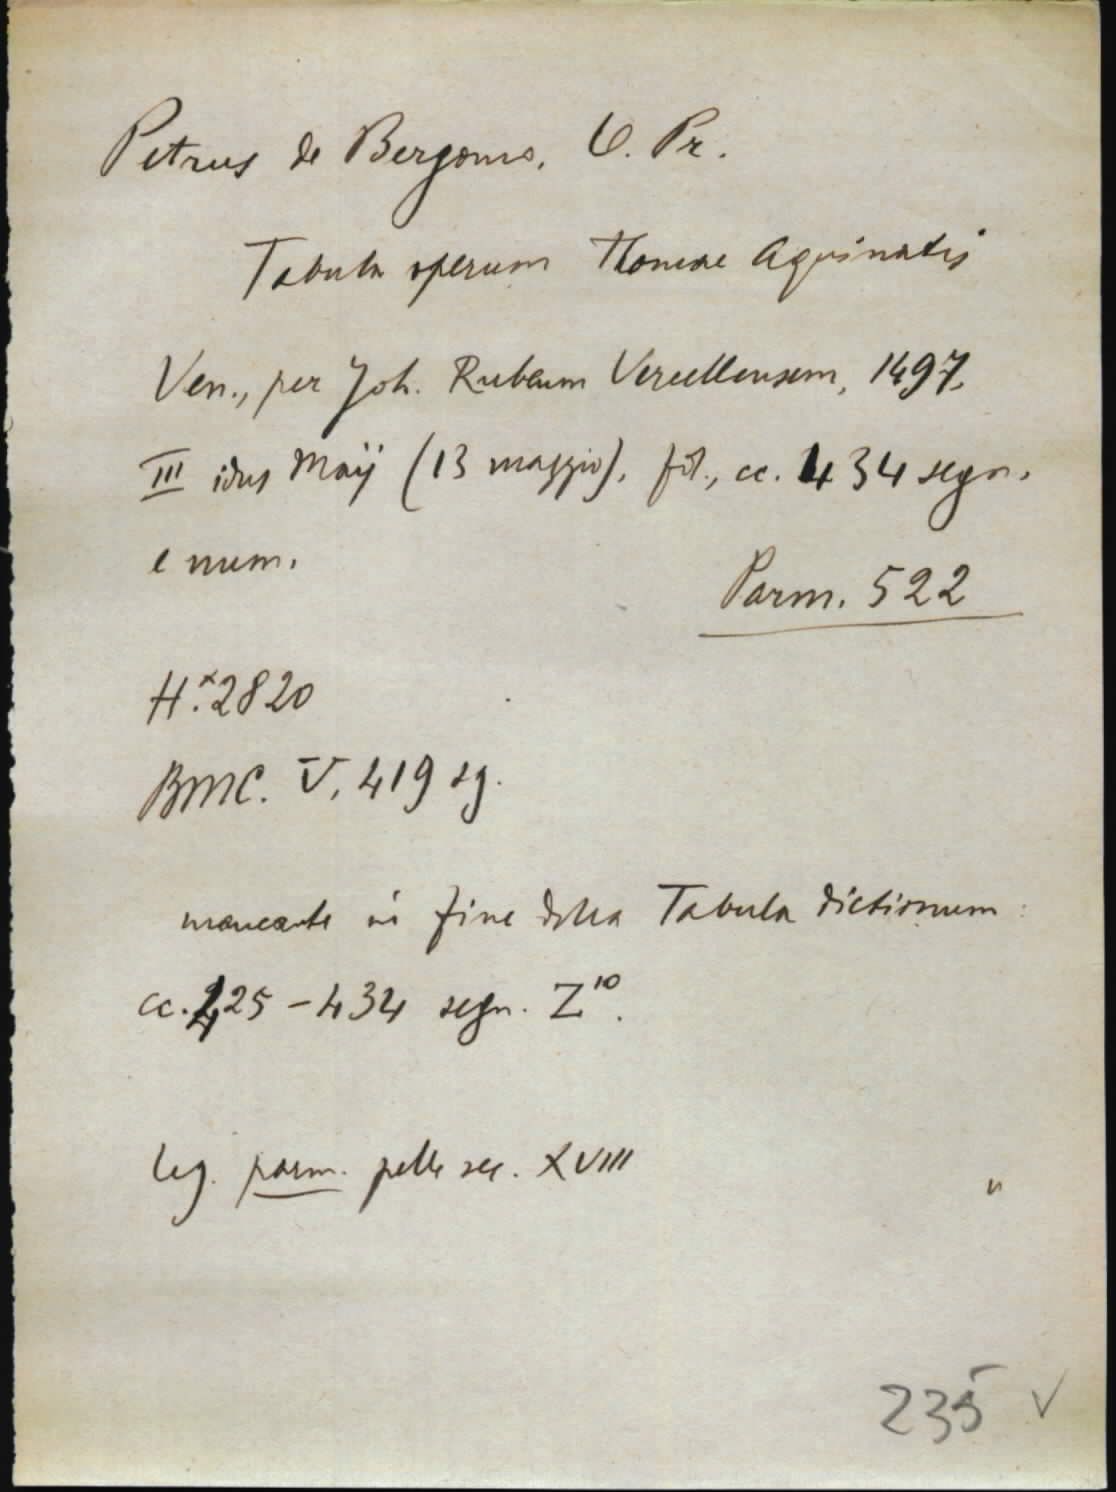 Petrus de Bergomo, O. Pr.
Tabula operum Thomae Aquinatis
Ven., per Joh. Rubeum Vercellensem, 1497,
III idus Maij (13 maggio), fol., cc. 434 segn.
e num.
Parm. 522
H.x2820
BMC. V, 419 sg.
mancante in fine della Tabula dictionum:
cc. 425-434 segn. Z10.
leg. parm. pelle sec. XVIII
235 ✓